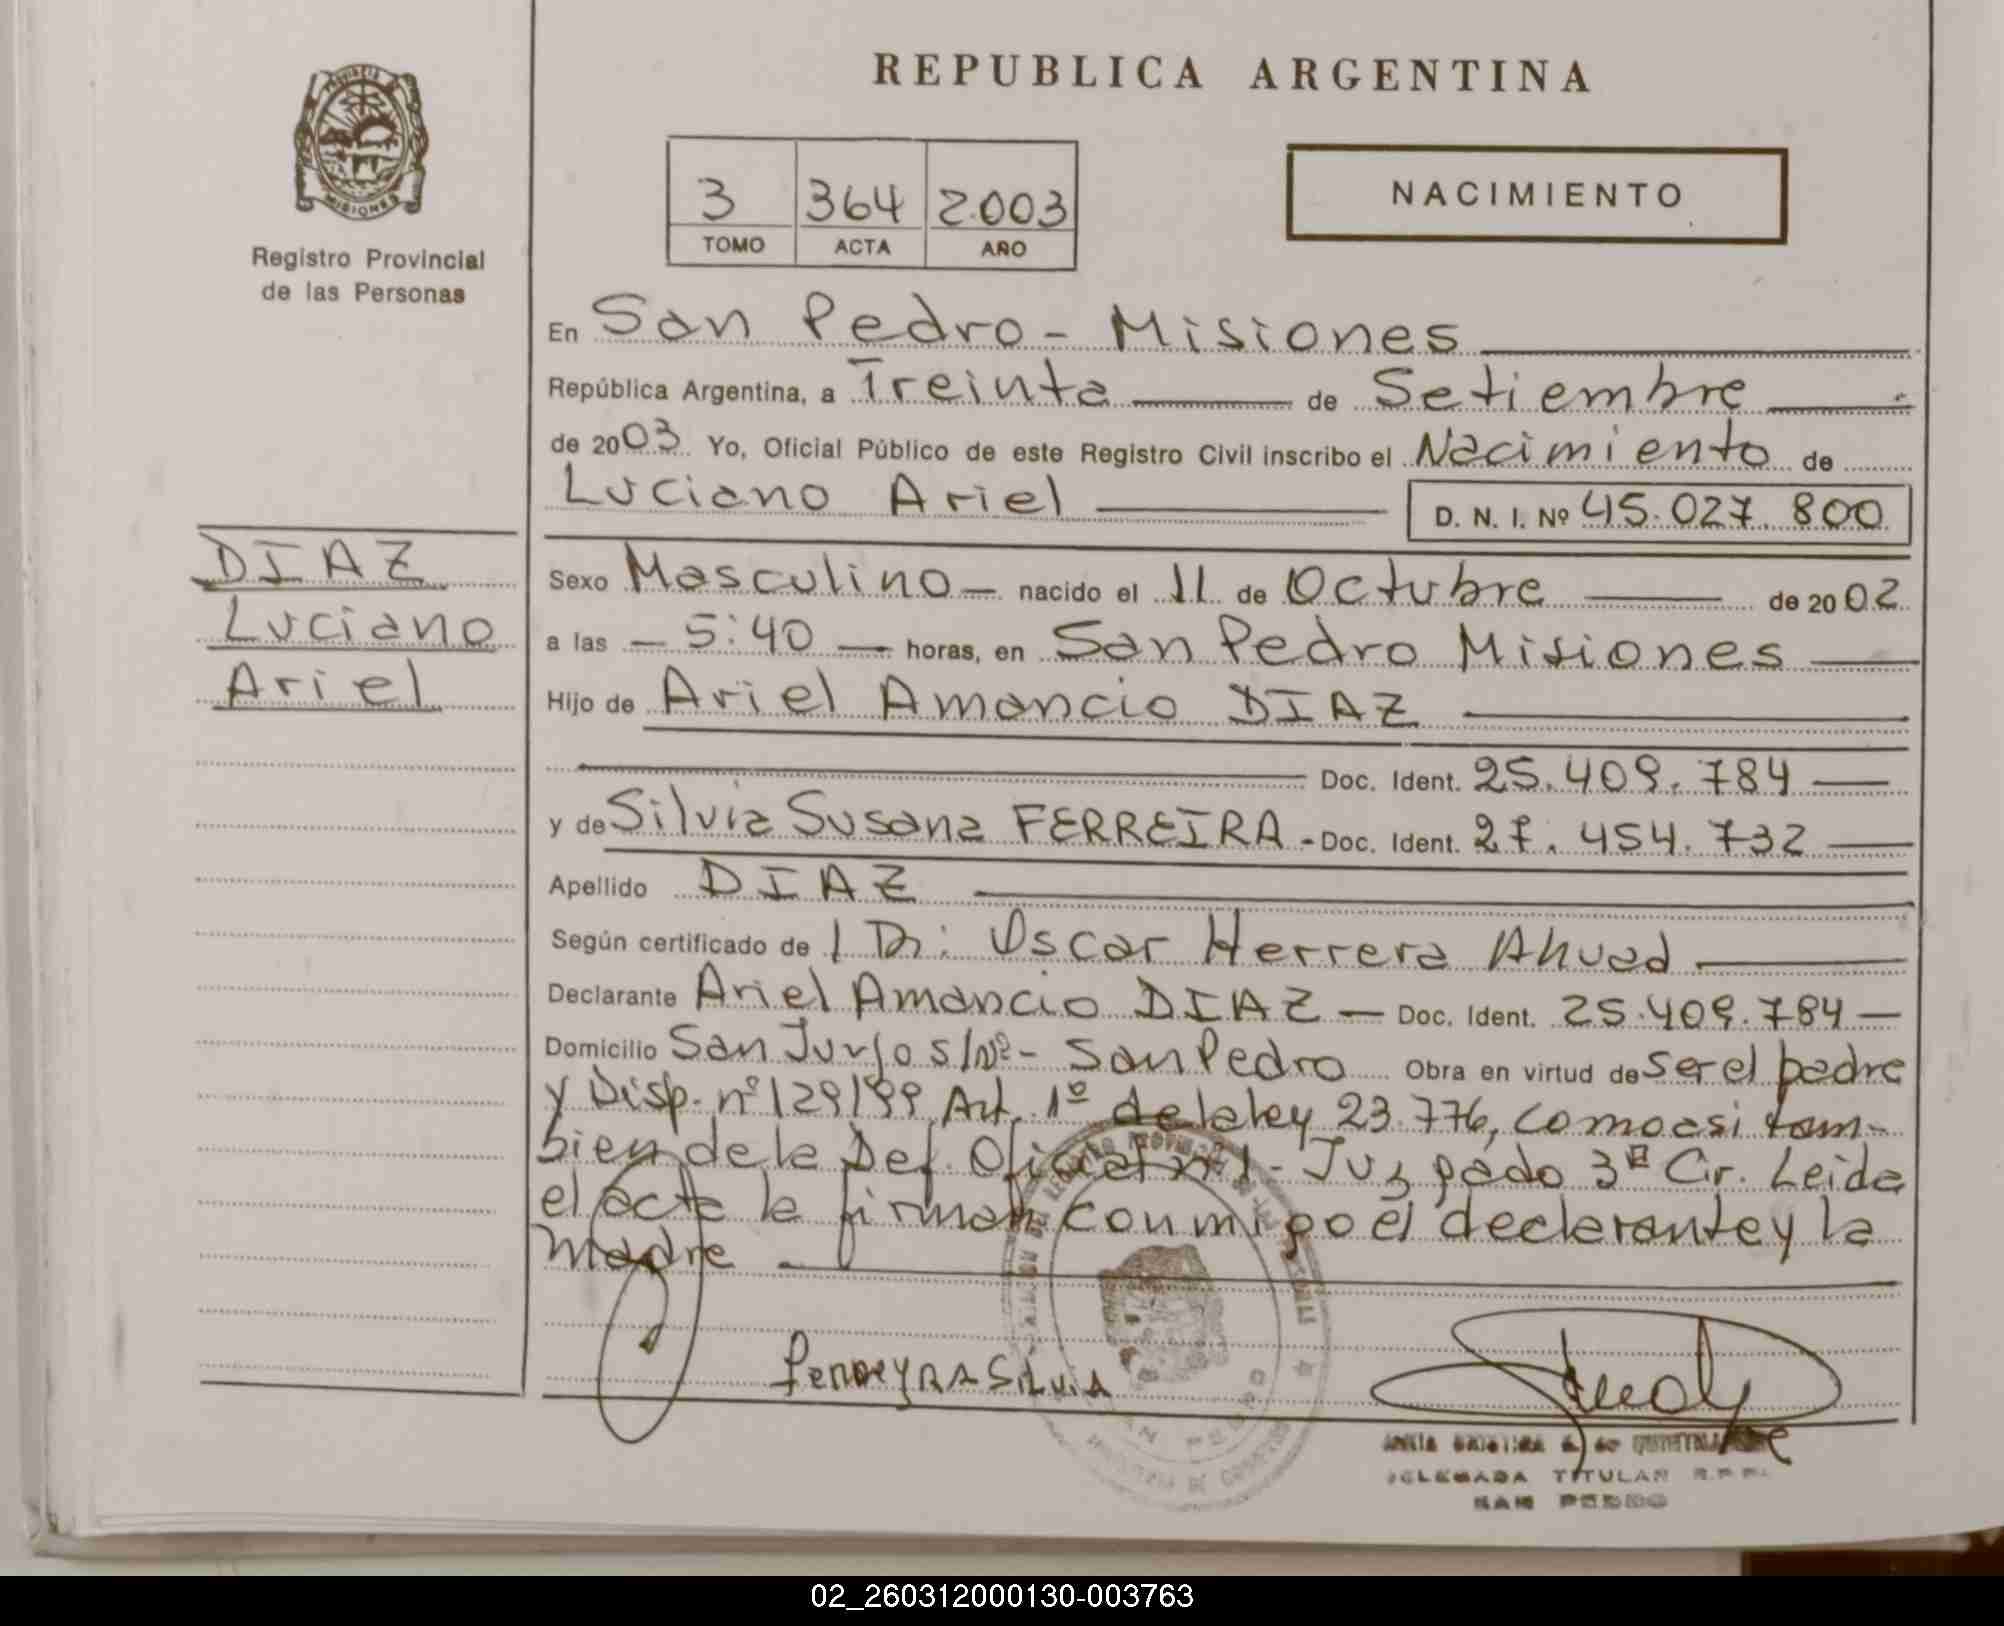 REPUBLICA ARGENTINA
PROVINCIA
MISIONES
Registro Provincial
de las Personas
3 364 2003
TOMO ACTA AÑO
NACIMIENTO
En San Pedro - Misiones
República Argentina, a Treinta de Setiembre
de 2003. Yo, Oficial Público de este Registro Civil inscribo el Nacimiento de
Luciano Ariel D. N. I. Nº 45.027.800
DIAZ
Luciano
Ariel
Sexo Masculino — nacido el 11 de Octubre de 2002
a las — 5:40 — horas, en San Pedro Misiones
Hijo de Ariel Amancio DIAZ
Doc. Ident. 25.409.784 —
y de Silvia Susana FERREIRA - Doc. Ident. 27.454.732 —
Apellido DIAZ
Según certificado de Dr: Oscar Herrera Ahuad
Declarante Ariel Amancio DIAZ — Doc. Ident. 25.409.784 —
Domicilio San Jurjo s/Nº - San Pedro Obra en virtud de ser el padre
y Disp. nº 129/99, Art. 1º de la ley 23.776, como asi tam-
bien de la Def. Oficial nº 1 - Juzgado 3ª Cir. Leida
el acta la firman conmigo el declarante y la
madre
Ferreyra Silvia
DELEGADA TITULAR R.P.P.
SAN PEDRO
02_260312000130-003763